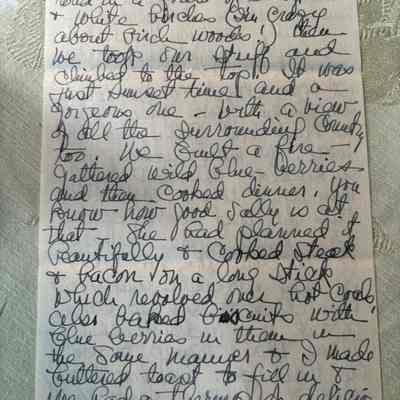 & white birches (I'm crazy
about birch woods) then
we took our stuff and
climbed to the top! It was
just sunset time and a
gorgeous one - with a view
of all the surrounding country
too. We built a fire -
gathered wild blue-berries
and then cooked dinner. You
know how good Sally is at
that - She had planned it
beautifully & cooked steak
& bacon on a long stick
which revolved over hot coals,
also baked biscuits with
blue berries in them in
the same manner & I made
buttered toast to fill in &
we had a thermos of